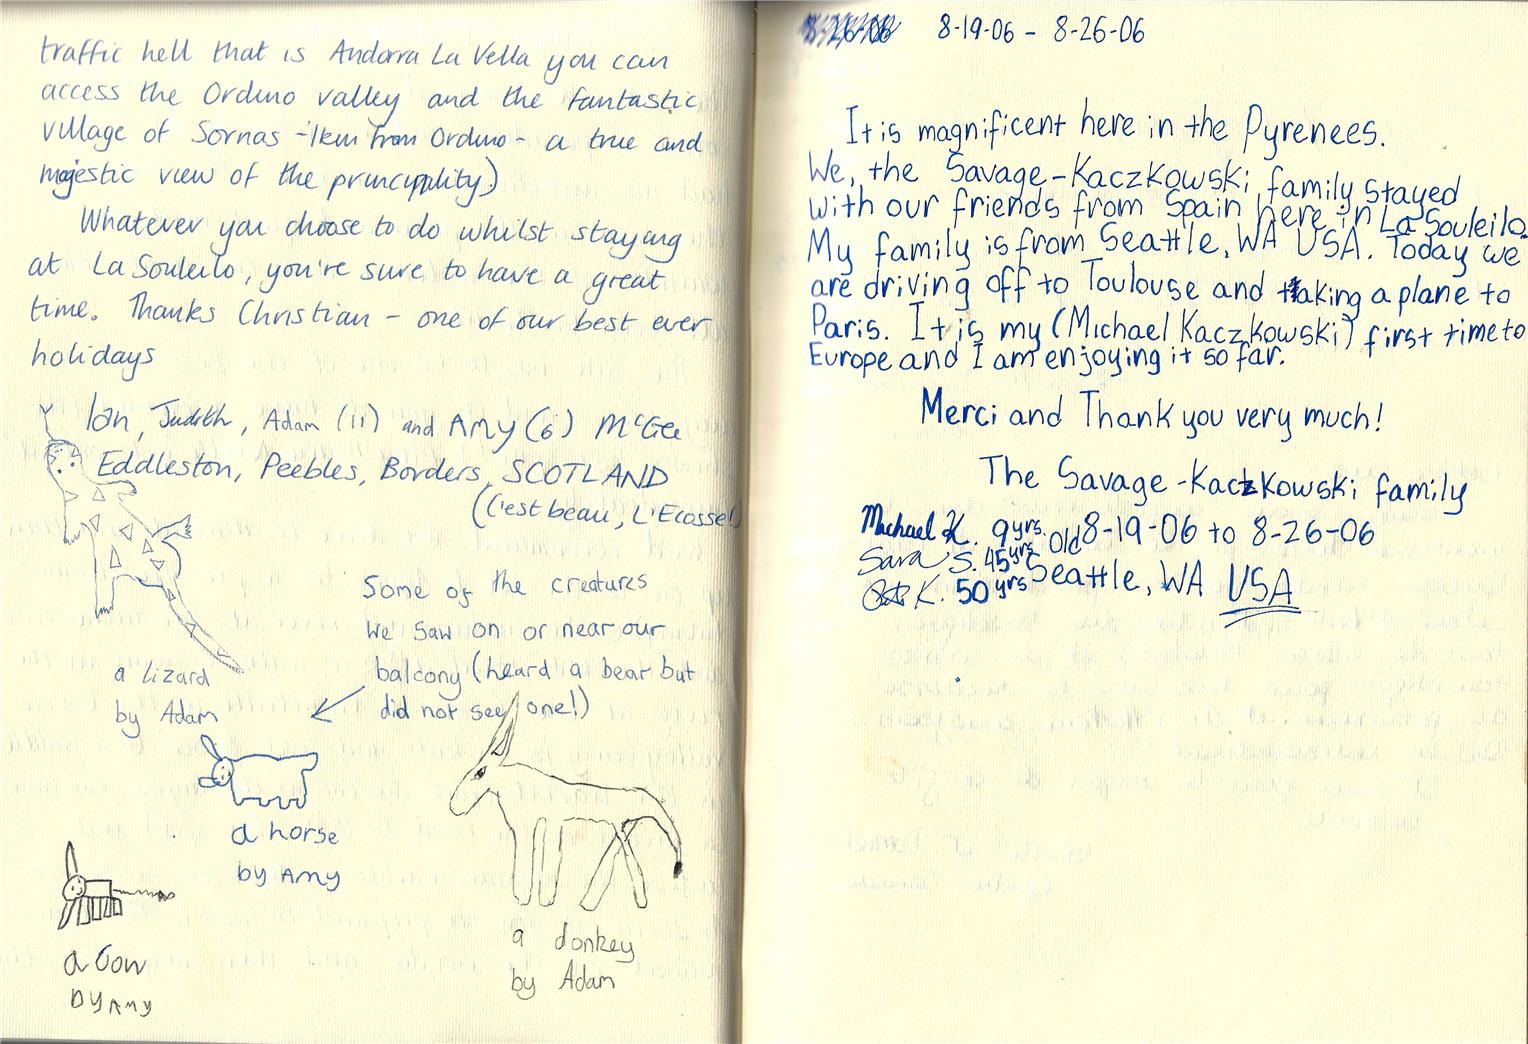 traffic hell that is Andorra La Vella you can
access the Ordino valley and the fantastic
village of Sornas - 1km from Ordino - a true and
majestic view of the principality)
Whatever you choose to do whilst staying
at La Souleilo, you're sure to have a great
time. Thanks Christian - one of our best ever
holidays
Ian, Judith, Adam (11) and Amy (6) McGee
Eddleston, Peebles, Borders, SCOTLAND
(C'est beau, L'Ecosse!)
Some of the creatures
we saw on or near our
balcony (heard a bear but
did not see one!)
a lizard
by Adam
a horse
by Amy
a Cow
by Amy
a donkey
by Adam
8-26-06 8-19-06 - 8-26-06
It is magnificent here in the Pyrenees.
We, the Savage-Kaczkowski family stayed
with our friends from Spain here in La Souleilo.
My family is from Seattle, WA USA. Today we
are driving off to Toulouse and taking a plane to
Paris. It is my (Michael Kaczkowski) first time to
Europe and I am enjoying it so far.
Merci and Thank you very much!
The Savage-Kaczkowski family
Michael K. 9yrs. old 8-19-06 to 8-26-06
Sara S. 45yrs Seattle, WA USA
K. 50 yrs